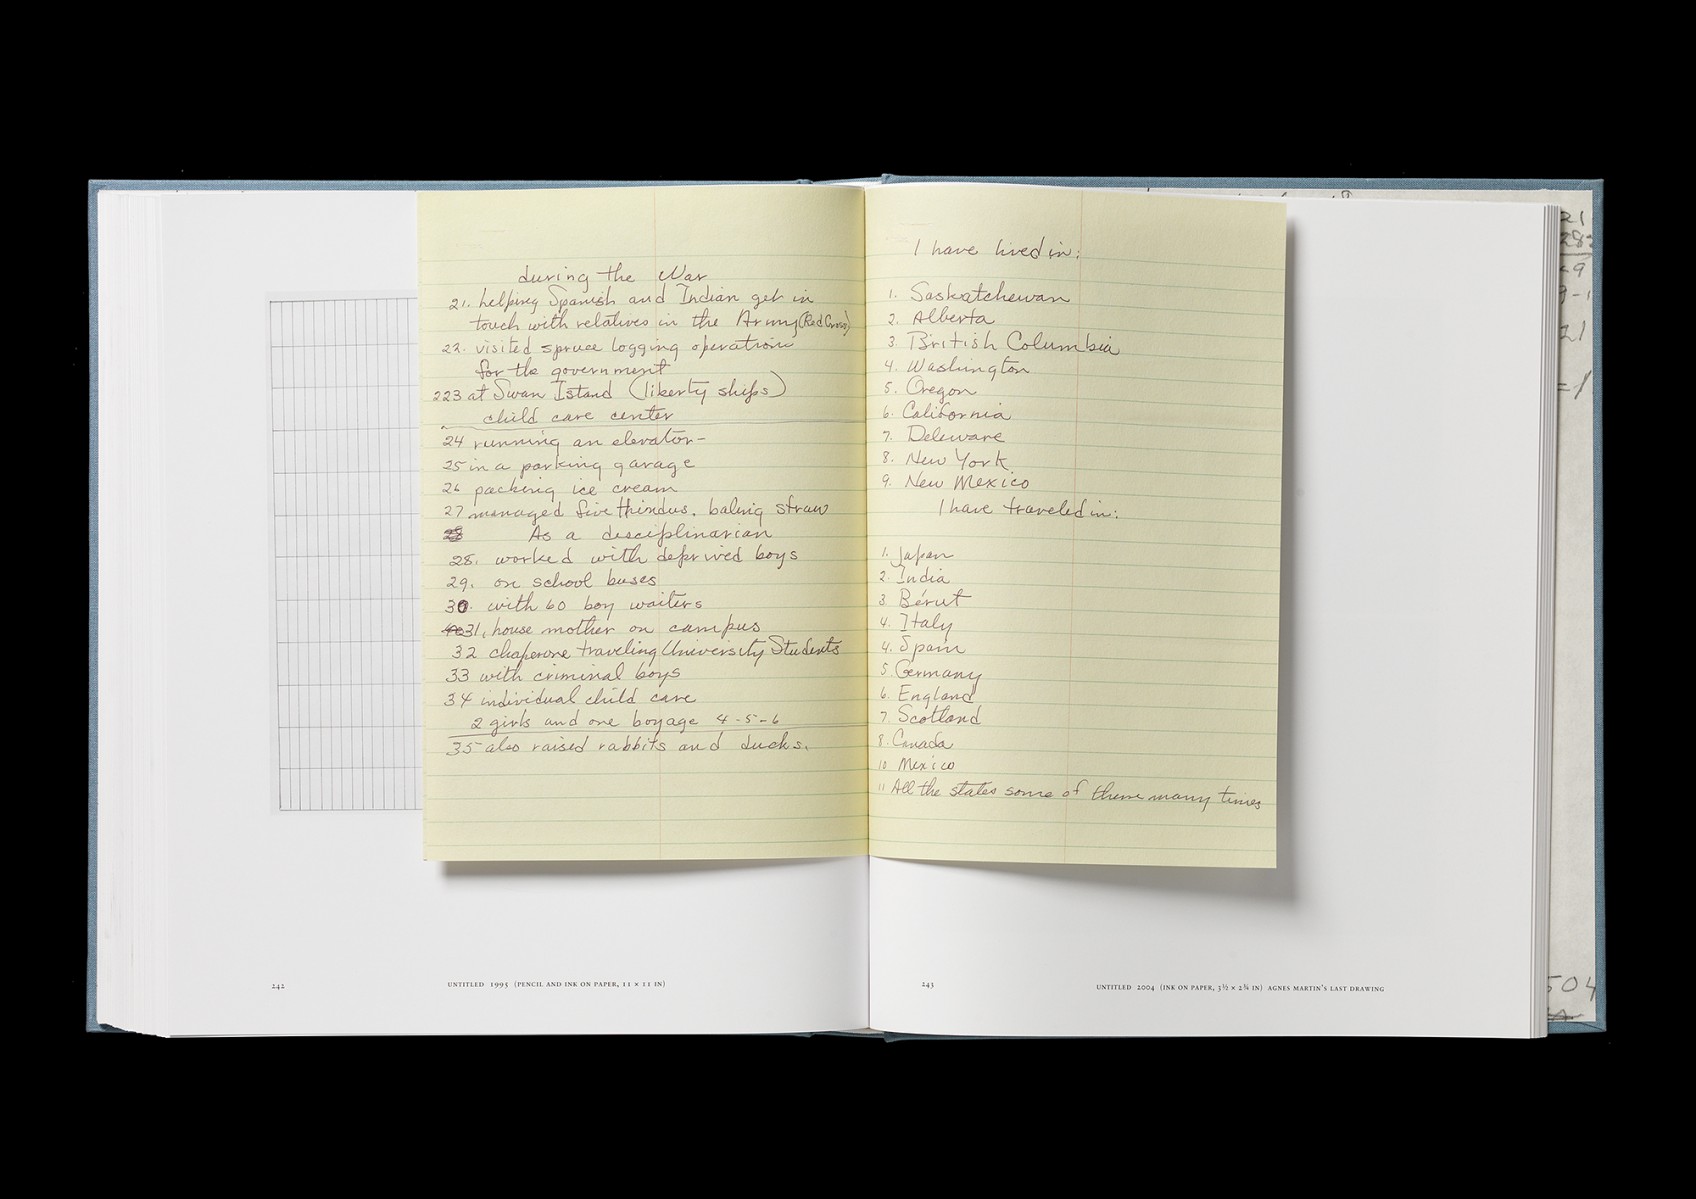 during the War
21. helping Spanish and Indian get in
touch with relatives in the Army (Red Cross)
22. visited spruce logging operations
for the government
223 at Swan Island (liberty ships)
child care center
24 running an elevator-
25 in a parking garage
26 packing ice cream
27 managed five Hindus. baling straw
28 As a disciplinarian
28. worked with deprived boys
29. on school buses
30. with 60 boy waiters
31. house mother on campus
32 chaperone traveling University Students
33 with criminal boys
34 individual child care
2 girls and one boy age 4-5-6
35 also raised rabbits and ducks.
242
UNTITLED 1995 (PENCIL AND INK ON PAPER, 11 × 11 IN)
I have lived in:
1. Saskatchewan
2. Alberta
3. British Columbia
4. Washington
5. Oregon
6. California
7. Deleware
8. New York
9. New Mexico
I have traveled in:
1. Japan
2. India
3 Bérut
4. Italy
4. Spain
5 Germany
6. England
7. Scotland
8. Canada
10 Mexico
11 All the states some of them many times
243
UNTITLED 2004 (INK ON PAPER, 3½ × 2¾ IN) AGNES MARTIN'S LAST DRAWING
21
504